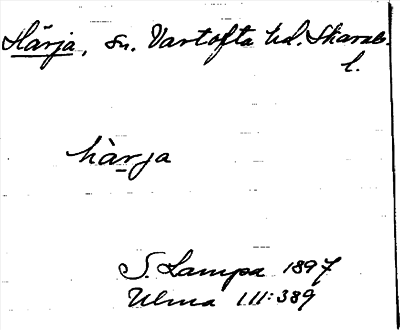 Härja, sn. Vartofta hd. Skarab.
l.
hàrja
S. Lampa 1897
Ulma 111:389